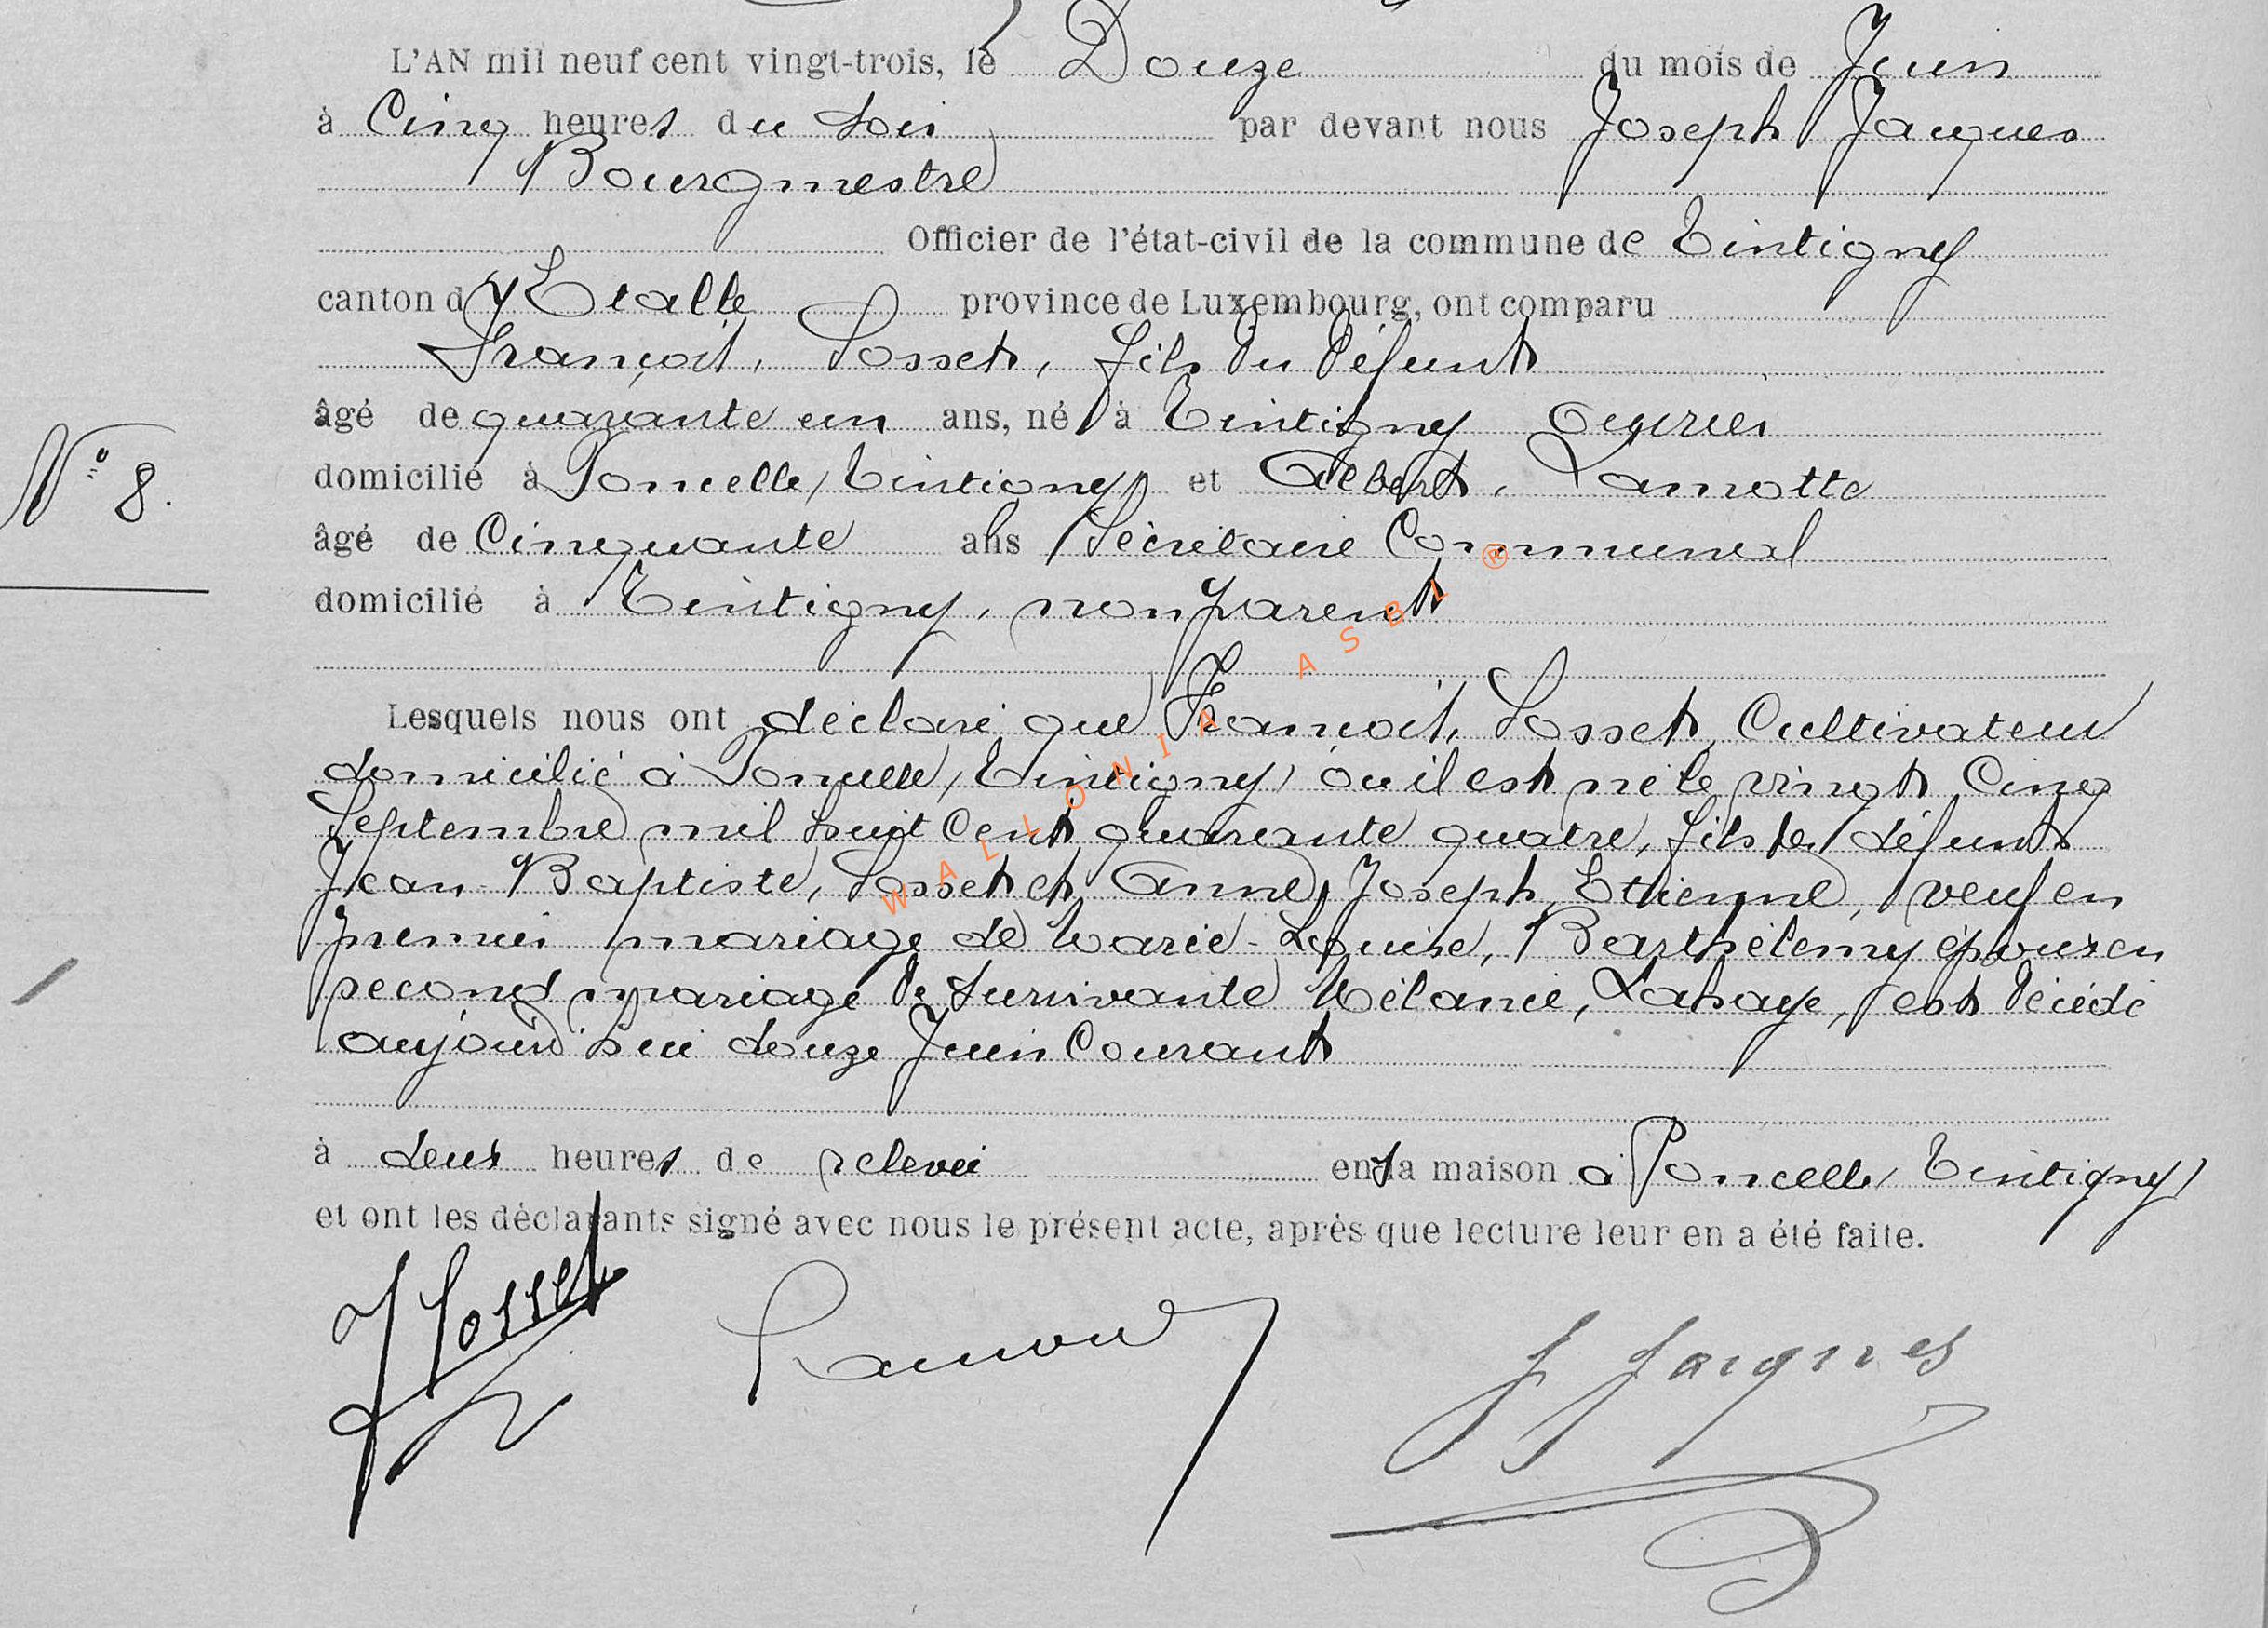 L'AN mil neuf cent vingt-trois, le Douze du mois de Juin
à Cinq heures du Soir par devant nous Joseph Jacques
Bourgmestre
Officier de l'état-civil de la commune de Tintigny
canton d'Etalle province de Luxembourg, ont comparu
François, Sosset, fils du défunt
âgé de quarante un ans, né à Tintigny
N° 8.
domicilié à Poncelle, Tintigny et Albert, Lamotte
âgé de Cinquante ans Sécrétaire Communal
domicilié à Tintigny, non parent
Lesquels nous ont déclaré que François, Sosset, Cultivateur
domicilié à Poncelle, Tintigny, ou il est né le vingt Cinq
Septembre mil huit Cent quarante quatre, fils des défunts
Jean-Baptiste, Sosset et Anne, Joseph, Etienne, veuf en
premier mariage de Marie-Louise, Barthélemy époux en
second mariage de survivante Mélanie, Lahaye, est décédé
aujourd'hui douze Juin Courant
à deux heures de relevée en sa maison à Poncelle, Tintigny,
et ont les déclarants signé avec nous le présent acte, après que lecture leur en a été faite.
F Sosset Lamotte J Jacques
WALLONIA ASBL ®